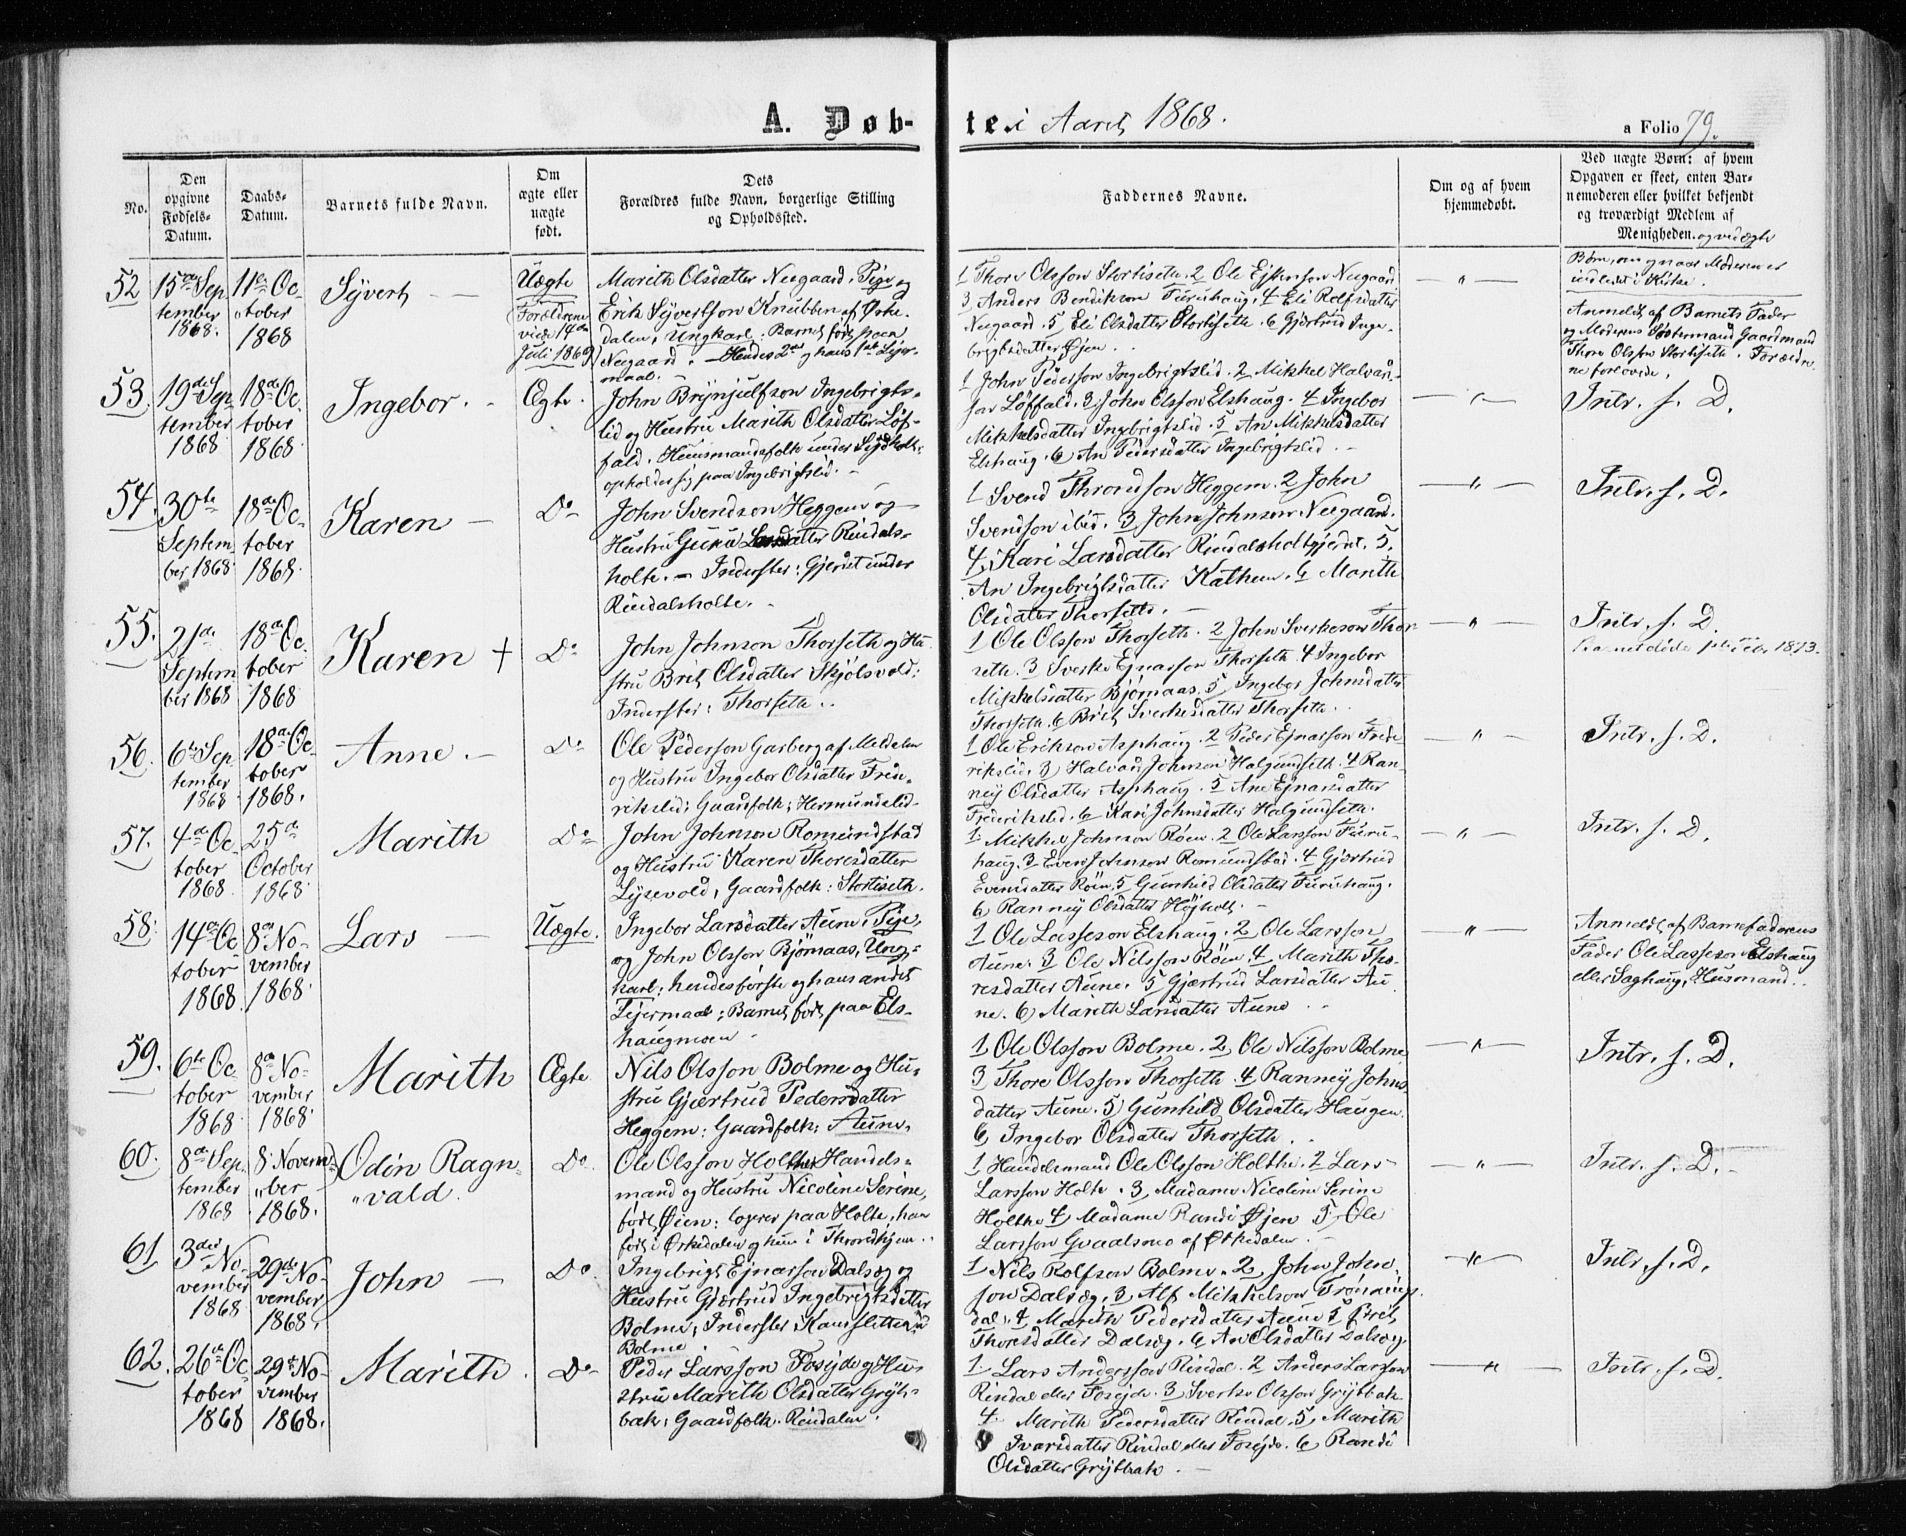 A. Døb-
te i Aaret 1868.
a Folio 79.
No.
Den
opgivne
Fødsels-
Datum.
Daabs-
Datum.
Barnets fulde Navn.
Om
ægte eller
uægte
født.
Dets
Forældres fulde Navn, borgerlige Stilling
og Opholdssted.
Faddernes Navne.
Om og af hvem
hjemmedøbt.
Ved uægte Børn: af hvem
Opgaven er skeet, enten Bar-
nemoderen eller hvilket bekjendt
og troværdigt Medlem af
Menigheden. og ved ægte
Børn, om og naar Moderen er
indledet i Kirke.
52
15de Sep
tember
1868.
11te Oc-
tober
1868
Syvert —
Uægte
Forældrene
viede 14de
Juli 1869
Marith Olsdatter Neegaard, Pige og
Erik Syvertson Knubben af Ørke-
dalen, Ungkarl. Barnet født paa
Neegaard. — Hendes 2det og hans 1ste Lejer-
maal.
1 Thore Olsson Stortiseth. 2 Ole Ejkenson Neegaard
3 Anders Bendikson Furuhaug. 4 Eli Rolfsdatter
Neegaard. 5 Eli Olsdatter Stortiseth. 6 Gjertrud Inge-
brigtsdatter Øjen.
— " —
Anmeldt af Barnets Fader
og Moderens Søstermand Gaardmand
Thore Olsson Stortiseth. Forældre
ne forlovede.
53.
19de Sep
tember
1868
18de Oc
tober
1868.
Ingebor. -
Ægte.
John Brynjulfson Ingebrigts-
lid og Hustru Marith Olsdatter Løf-
fald. Huusmandsfolk under
opholder sig paa Ingebrigtslid. -
1 John Pederson Ingebrigtslid. 2 Mikkel Halvar-
Løffald. 3 John Olsson Elshaug. 4 Ingebor
Mikkelsdatter Ingebrigtslid. 5 An Mikkelsdatter
Elshaug. 6 An Pedersdatter Ingebrigtslid. -
— " —
Intr. s. D.
54.
30te
Septem
ber 1868
18de Oc-
tober
1868.
Karen —
Do
John Svendson Heggem og
Hustru Guru Larsdatter Rindals-
holte. — Inderster: Gjerdet under
Rindalsholte. -
1 Svend Throndson Heggem. 2 John
Svendson ibid. 3 John Johnson Neegaard.
4 Kari Larsdatter Rindalsholtgjerdet. 5.
An Ingebrigtsdatter . 6 Marith
Olsdatter Thorseth. -
— " —
Intr. s. D.
55.
21de
Septem
ber 1868
18de Oc
tober
1868
Karen +
Do
John Johnson Thorseth og Hu
stru Brit Olsdatter Skjølsvold;
Inderster: Thorseth.
1 Ole Olsson Thorseth. 2 John Sverkeson Thor
seth. 3 Sverke Ejnarson Thorseth. 4 Ingebor
Mikkelsdatter Bjørnaas. 5 Ingebor Johnsdatter
Thorseth. 6 Brit Sverkesdatter Thorseth.
— " —
Intr. s. D.
Barnet døde Febr 1873.
56.
6te Sep
tember
1868
18de Oc
tober
1868.
Anne. —
Do
Ole Pederson Garberg af Meldalen
og Hustru Ingebor Olsdatter Fred-
rikslid; Gaardfolk; Hermundslid-
1 Ole Erikson Asphaug. 2 Peder Ejnarson Frede
rikslid. 3 Halvar Johnson Halgundseth. 4 Ran-
nej Olsdatter Asphaug. 5 Ane Ejnarsdatter
Frederikslid. 6 Kari Johnsdatter Halgundseth.
— " —
Intr. s. D.
57.
4de Oc
tober
1868.
25de
October
1868.
Marith
Do
John Johnson Romundstad
og Hustru Karen Thoresdatter
Lysevold, Gaardfolk: Stortiseth.
1. Mikkel Johnson Røen. 2 Ole Larsson Furu-
haug. 3 Even Johnson Romundstad. 4 Gjertrud
Evensdatter Røen. 5 Gunhild Olsdatter Furuhaug.
6 Rannej Olsdatter Højholt. -
— " —
Intr. s. D.
58.
14de Oc
tober
1868
8de No-
vember
1868.
Lars —
Uægte.
Ingebor Larsdatter Aune, Pige,
og John Olsson Bjørnaas, Ung-
karl; hendes første og hans andet
Lejermaal; Barnet født paa Els-
haugmoen -
1 Ole Lasseson Elshaug. 2 Ole Larsson
Aune. 3 Ole Nilsson Røen. 4 Marith Tho-
resdatter Aune. 5 Gjertrud Larsdatter Au
ne. 6 Marith Larsdatter Aune
— " —
Anmeldt af Barnefaderens
Fader Ole Lasseson Elshaug
eller Saghaug, Husmand.
59.
6te Oc
tober
1868.
8de No-
vember
1868.
Marith
Ægte
Nils Olsson Bolme og Hu-
stru Gjertrud Pedersdatter
Heggem: Gaardfolk: Aune.
1 Ole Olsson Bolme. 2 Ole Nilsson Bolme
3 Thore Olsson Thorseth. 4 Rannej Johns
datter Aune. 5 Gunhild Olsdatter Haugen.
6 Ingebor Olsdatter Thorseth.
— " —
Intr. s. D.
60.
8de Sep
tember
1868
8 Novem
"ber
1868.
Odin Ragn-
"vald.
Do
Ole Olsson Holthe Handels-
mand og Hustru Nicoline Serine,
født Øien: logerer paa Holte, han
født i Ørkedalen og hun i Throndhjem.
1 Handelsmand Ole Olsson Holthe. 2 Lars
Larsson Holte. 3 Madame Nicoline Serine
Holthe 4 Madame Randi Øjen 5 Ole
Larsson Gvaalsmo af Ørkedalen. -
— " —
Intr. s. D. -
61
3die No-
vember
1868
29de No-
vember
1868.
John —
Do
Ingebrigt Ejnarson Dalsøg og
Hustru Gjertrud Ingebrigtsdatter
Bolme; Inderster,
Bolme
1 Nils Rolfson Bolme. 2 John John-
son Dalsøg. 3 Alf Mikkelson Trønnings
dal. 4 Marith Pedersdatter Aune 5 Brit
Thoresdatter Dalsøg. 6 An Olsdatter Dalsøg.
— " —
Intr. s. D.
62.
26de Oc
tober
1868
29de No-
vember
1868.
Marith.
Do
Peder Larsson Fosejde og Hu-
stru Marith Olsdatter Grytt-
bak; Gaardfolk. Rindalen.
1 Lars Andersson Rindal. 2 Anders Larsson
Rindal eller Fosejde. 3 Sverke Olsson Gryttbak
4. Marith Pedersdatter Rindal. 5 Marith
Ivarsdatter Rindal eller Fosejde. 6 Randi
Olsdatter Gryttbak. -
— " —
Intr. s. D.